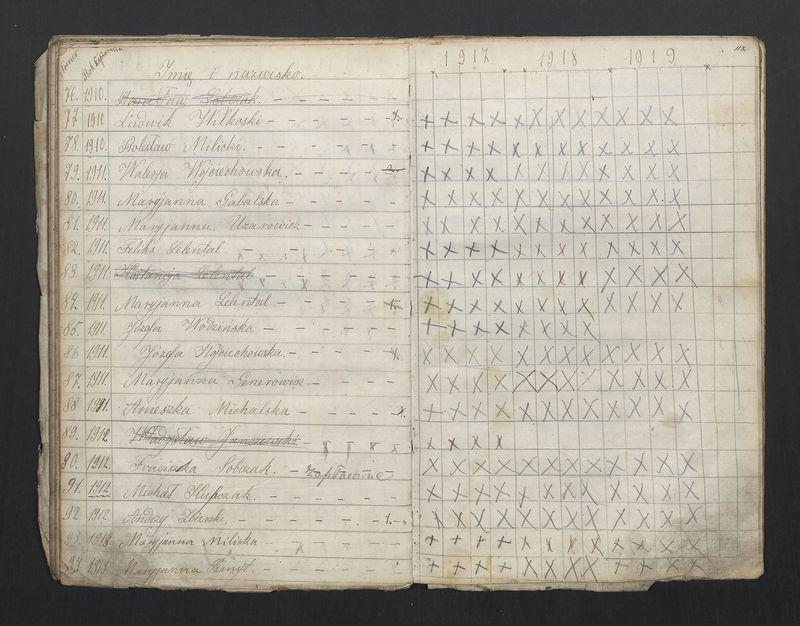 Imię i nazwisko.
1917 1918 1919
76. 1910. Sobczak.
77. 1910 Ludwik Witkoski
78. 1910. Bolesław Milicki.
79. 1911. Walerja Wojciechowska.
80. 1911. Maryjanna Gabalska
81. 1911. Maryjanna Uzarowicz
82. 1911. Feliks Lelental
83. 1911 Lelental
84. 1911. Maryjanna Lelental
85. 1911 Józefa Wodzińska
86 1911. Józefa Wojciechowska.
87. 1911. Maryjanna Generowicz
88 1911. Anieszka Michalska
89. 1912 Władysław Janczewski
90. 1912. Franciszka Sobczak. zapłacone
91. 1912 Michał
92 1912. Andrzy
93 1913 Maryjanna Milicka
94 1913 Maryjanna Szmyt.